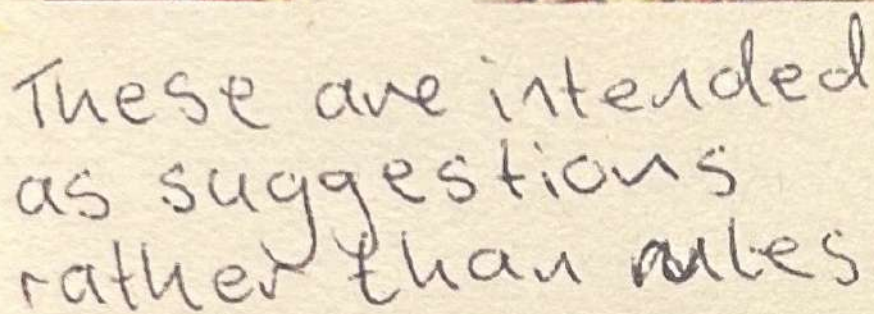 These are intended
as suggestions
rather than rules